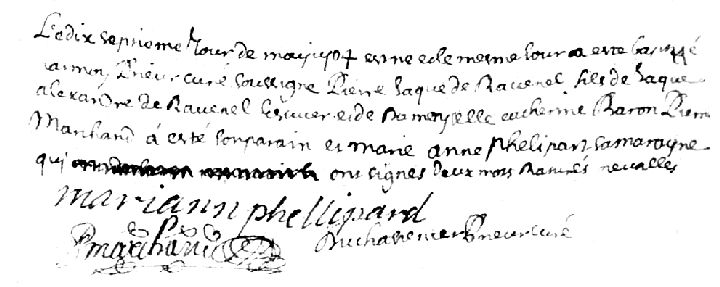 Le dix septieme jour de may 1707 est ne et le mesme jour a este baptizé
par moy Prieur curé soussigne Pierre Jaque de Ravenel fils de Jaque
alexandre de Ravenel Escuier et de Damoyselle catherine Baron Pierre
Marchand á esté son parain et marie anne phelipart sa maraigne
qui ont signés deux mots Raturés
mariann phellipard
P marchand Prieur curé